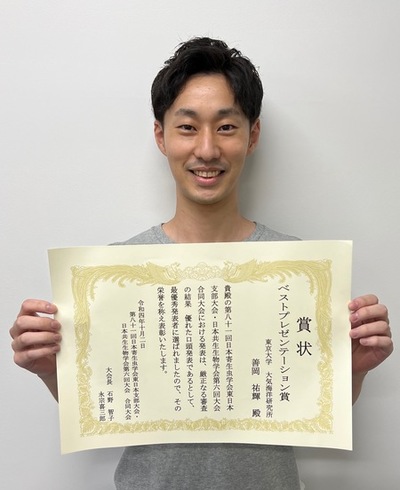 賞状
ベストプレゼンテーション賞
東京大学 大気海洋研究所
善岡 祐輝 殿
貴殿の第八十一回日本寄生虫学会東日本
支部大会・日本共生生物学会第六回大会
合同大会における発表は、厳正なる審査
の結果、優れた口頭発表であるとして、
最優秀発表者に選ばれましたので、その
栄誉を称え表彰いたします。
令和四年十月二日
第八十一回日本寄生虫学会東日本支部大会・
日本共生生物学会第六回大会 合同大会
大会長 石野 智子
永宗喜三郎